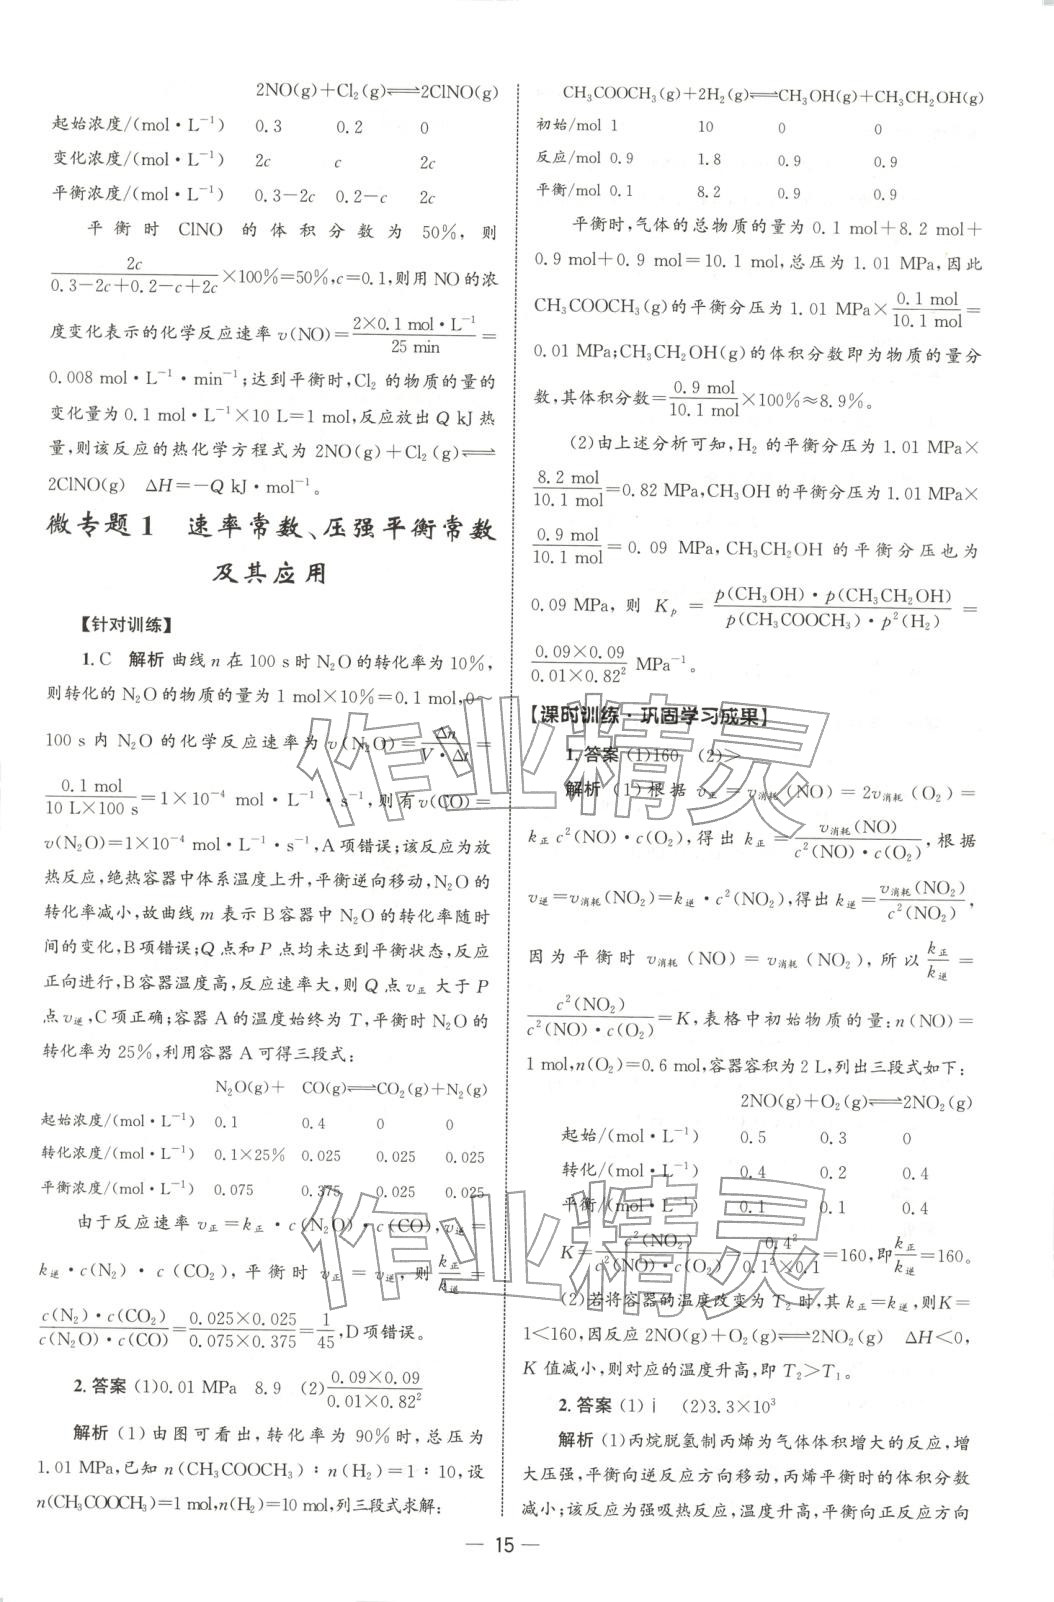 2NO(g)+Cl₂(g)⇌2ClNO(g)
起始浓度/(mol·L⁻¹) 0.3 0.2 0
变化浓度/(mol·L⁻¹) 2c c 2c
平衡浓度/(mol·L⁻¹) 0.3-2c 0.2-c 2c
平衡时 ClNO 的体积分数为 50%,则
2c/(0.3-2c+0.2-c+2c)×100%=50%,c=0.1,则用 NO 的浓
度变化表示的化学反应速率 v(NO)=(2×0.1 mol·L⁻¹)/(25 min)=
0.008 mol·L⁻¹·min⁻¹;达到平衡时,Cl₂ 的物质的量的
变化量为 0.1 mol·L⁻¹×10 L=1 mol,反应放出 Q kJ 热
量,则该反应的热化学方程式为 2NO(g)+Cl₂(g)⇌
2ClNO(g) ΔH=-Q kJ·mol⁻¹。
微专题 1 速率常数、压强平衡常数
及其应用
【针对训练】
1.C 解析 曲线 n 在 100 s 时 N₂O 的转化率为 10%,
则转化的 N₂O 的物质的量为 1 mol×10%=0.1 mol,0~
100 s 内 N₂O 的化学反应速率为 v(N₂O)=Δn/(V·Δt)=
0.1 mol/(10 L×100 s)=1×10⁻⁴ mol·L⁻¹·s⁻¹,则有 v(CO)=
v(N₂O)=1×10⁻⁴ mol·L⁻¹·s⁻¹,A 项错误;该反应为放
热反应,绝热容器中体系温度上升,平衡逆向移动,N₂O 的
转化率减小,故曲线 m 表示 B 容器中 N₂O 的转化率随时
间的变化,B 项错误;Q 点和 P 点均未达到平衡状态,反应
正向进行,B 容器温度高,反应速率大,则 Q 点 v正 大于 P
点 v逆,C 项正确;容器 A 的温度始终为 T,平衡时 N₂O 的
转化率为 25%,利用容器 A 可得三段式:
N₂O(g)+ CO(g)⇌CO₂(g)+N₂(g)
起始浓度/(mol·L⁻¹) 0.1 0.4 0 0
转化浓度/(mol·L⁻¹) 0.1×25% 0.025 0.025 0.025
平衡浓度/(mol·L⁻¹) 0.075 0.375 0.025 0.025
由于反应速率 v正=k正·c(N₂O)·c(CO),v逆=
k逆·c(N₂)·c(CO₂),平衡时 v正=v逆,则 k正/k逆=
c(N₂)·c(CO₂)/(c(N₂O)·c(CO))=(0.025×0.025)/(0.075×0.375)=1/45,D 项错误。
2.答案 (1)0.01 MPa 8.9 (2)(0.09×0.09)/(0.01×0.82²)
解析 (1)由图可看出,转化率为 90%时,总压为
1.01 MPa,已知 n(CH₃COOCH₃)∶n(H₂)=1∶10,设
n(CH₃COOCH₃)=1 mol,n(H₂)=10 mol,列三段式求解:
CH₃COOCH₃(g)+2H₂(g)⇌CH₃OH(g)+CH₃CH₂OH(g)
初始/mol 1 10 0 0
反应/mol 0.9 1.8 0.9 0.9
平衡/mol 0.1 8.2 0.9 0.9
平衡时,气体的总物质的量为 0.1 mol+8.2 mol+
0.9 mol+0.9 mol=10.1 mol,总压为 1.01 MPa,因此
CH₃COOCH₃(g)的平衡分压为 1.01 MPa×(0.1 mol)/(10.1 mol)=
0.01 MPa;CH₃CH₂OH(g)的体积分数即为物质的量分
数,其体积分数=(0.9 mol)/(10.1 mol)×100%≈8.9%。
(2)由上述分析可知,H₂ 的平衡分压为 1.01 MPa×
(8.2 mol)/(10.1 mol)=0.82 MPa,CH₃OH 的平衡分压为 1.01 MPa×
(0.9 mol)/(10.1 mol)=0.09 MPa,CH₃CH₂OH 的平衡分压也为
0.09 MPa,则 Kp=p(CH₃OH)·p(CH₃CH₂OH)/(p(CH₃COOCH₃)·p²(H₂))=
(0.09×0.09)/(0.01×0.82²) MPa⁻¹。
【课时训练·巩固学习成果】
1.答案 (1)160 (2)>
解析 (1)根据 v正=v消耗(NO)=2v消耗(O₂)=
k正 c²(NO)·c(O₂),得出 k正=v消耗(NO)/(c²(NO)·c(O₂)),根据
v逆=v消耗(NO₂)=k逆·c²(NO₂),得出 k逆=v消耗(NO₂)/c²(NO₂),
因为平衡时 v消耗(NO)=v消耗(NO₂),所以 k正/k逆=
c²(NO₂)/(c²(NO)·c(O₂))=K,表格中初始物质的量:n(NO)=
1 mol,n(O₂)=0.6 mol,容器容积为 2 L,列出三段式如下:
2NO(g)+O₂(g)⇌2NO₂(g)
起始/(mol·L⁻¹) 0.5 0.3 0
转化/(mol·L⁻¹) 0.4 0.2 0.4
平衡/(mol·L⁻¹) 0.1 0.1 0.4
K=c²(NO₂)/(c²(NO)·c(O₂))=0.4²/(0.1²×0.1)=160,即 k正/k逆=160。
(2)若将容器的温度改变为 T₂ 时,其 k正=k逆,则K=
1<160,因反应 2NO(g)+O₂(g)⇌2NO₂(g) ΔH<0,
K 值减小,则对应的温度升高,即 T₂>T₁。
2.答案 (1)ⅰ (2)3.3×10³
解析 (1)丙烷脱氢制丙烯为气体体积增大的反应,增
大压强,平衡向逆反应方向移动,丙烯平衡时的体积分数
减小;该反应为强吸热反应,温度升高,平衡向正反应方向
— 15 —
作业精灵
作业精灵